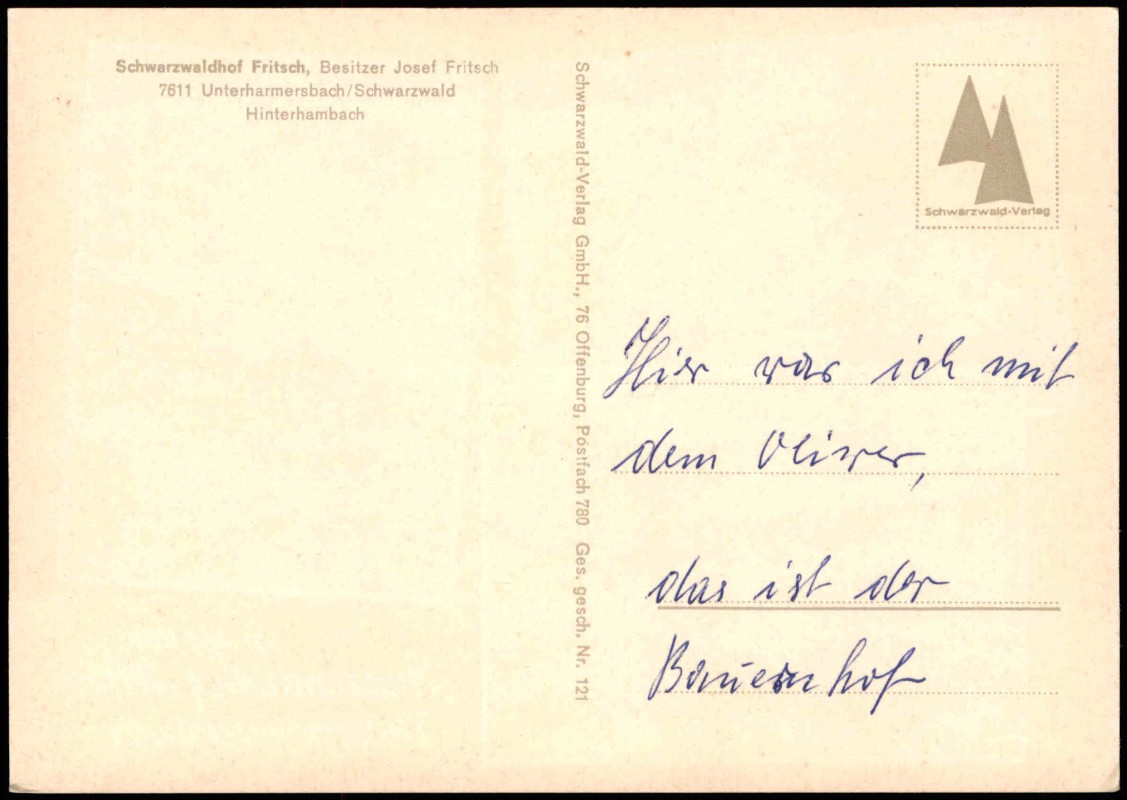 Schwarzwaldhof Fritsch, Besitzer Josef Fritsch
7611 Unterharmersbach/Schwarzwald
Hinterhambach
Schwarzwald-Verlag GmbH., 76 Offenburg, Postfach 780 Ges. gesch. Nr. 121
Schwarzwald-Verlag
Hier war ich mit
dem Oliver,
das ist der
Bauernhof